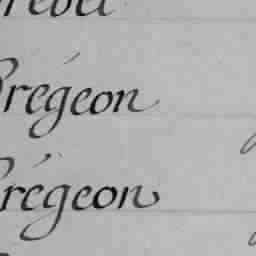 Prégeon
Prégeon